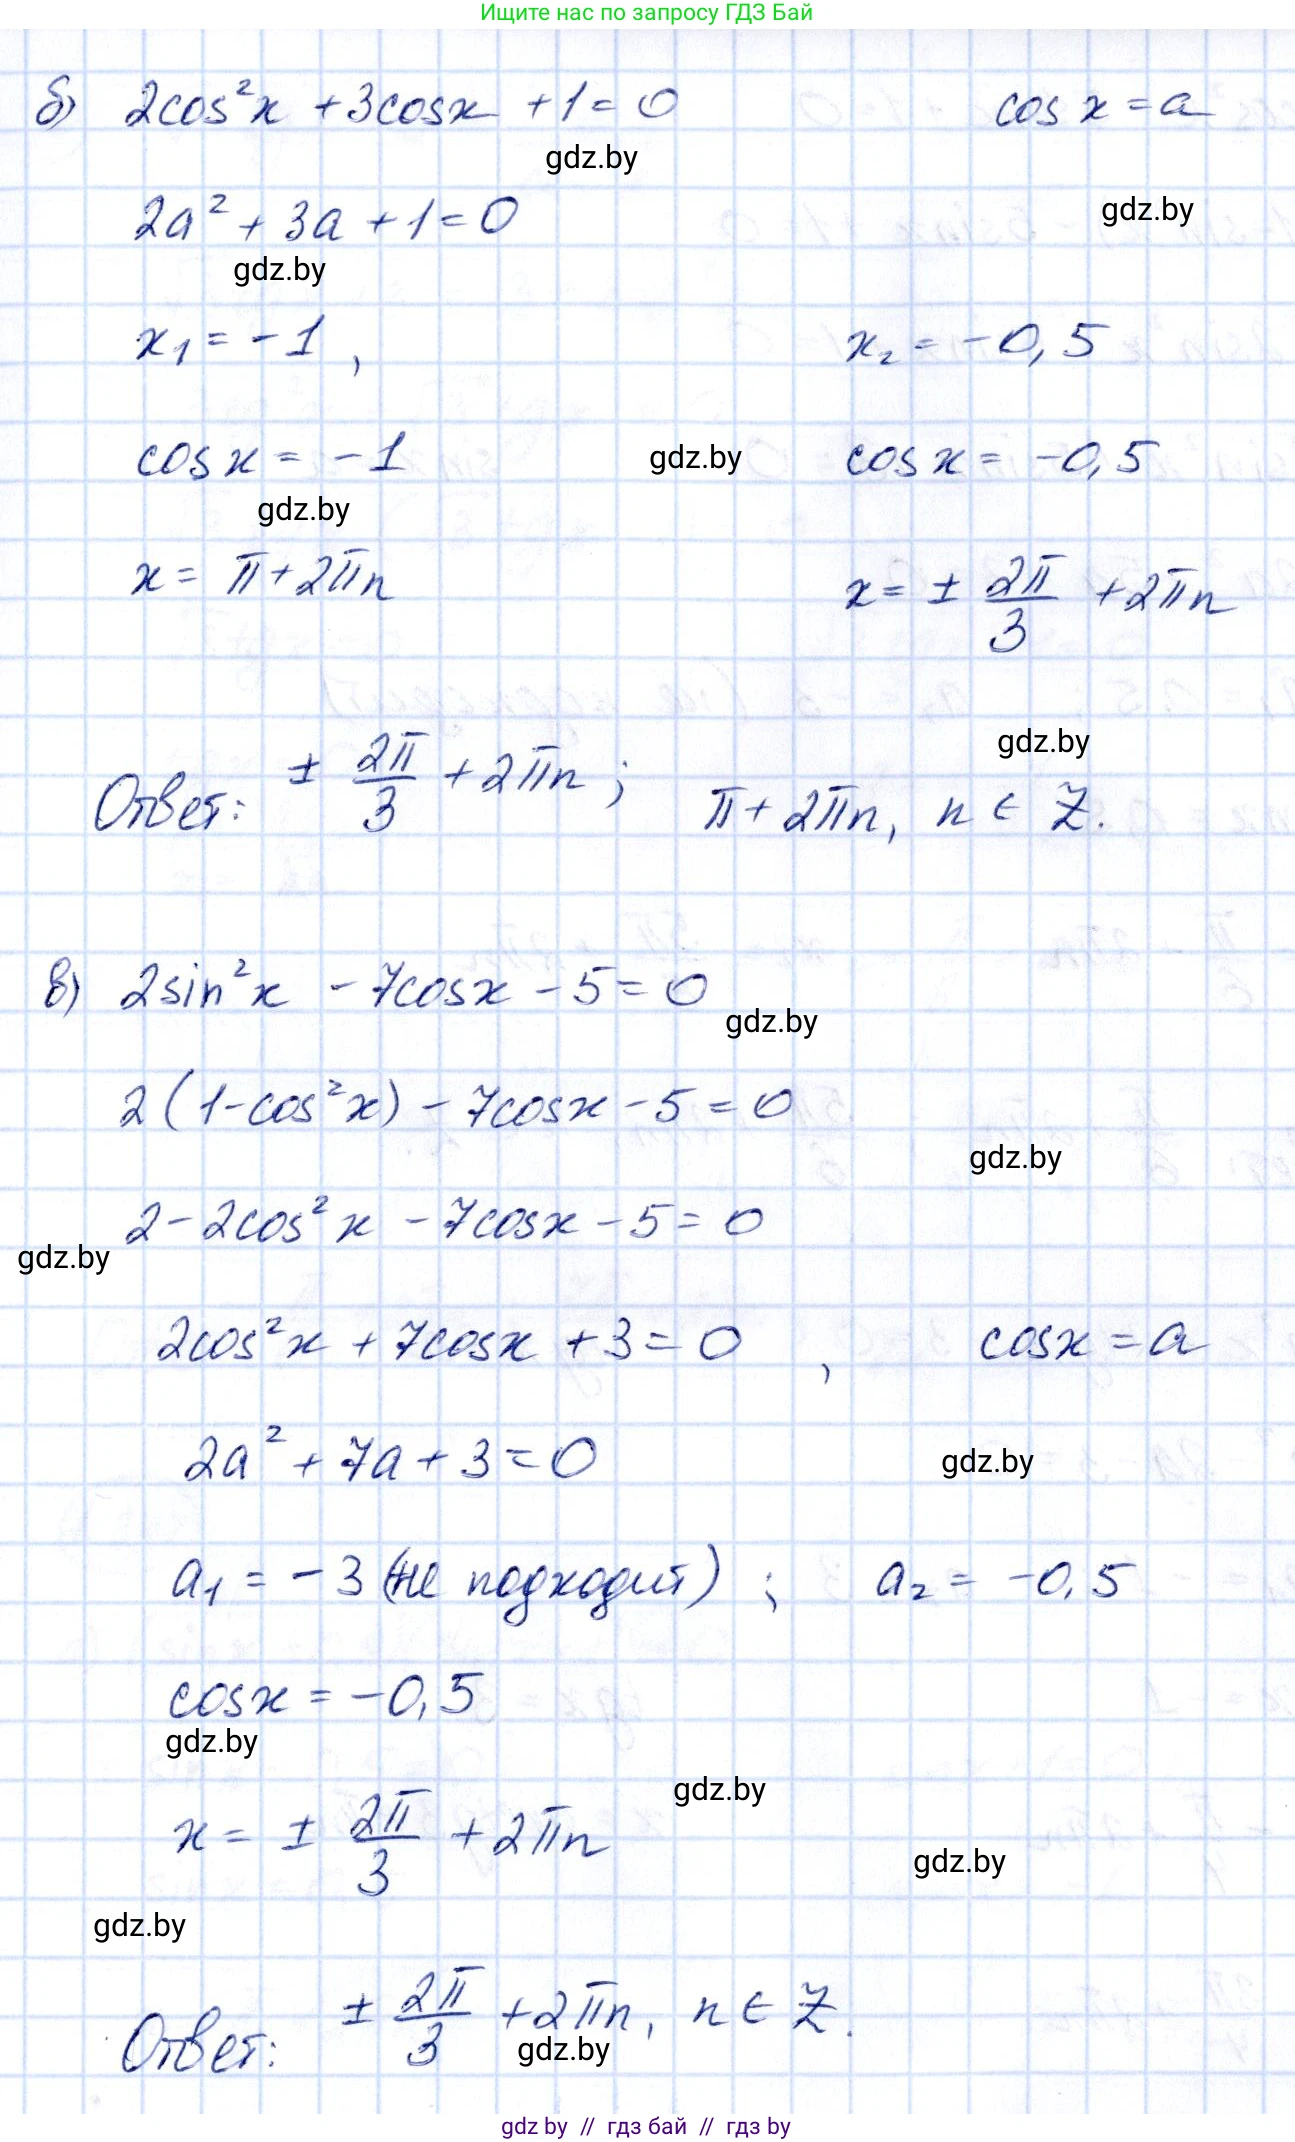 Ищите нас по запросу ГДЗ Бай
б) 2cos²x + 3cosx + 1 = 0 cos x = a
gdz.by
2a² + 3a + 1 = 0 gdz.by
gdz.by
x₁ = -1 , x₂ = -0,5
cos x = -1 gdz.by cos x = -0,5
gdz.by
x = π + 2πn x = ± 2π/3 + 2πn
gdz.by
Ответ: ± 2π/3 + 2πn ; π + 2πn, n ∈ Z.
в) 2sin²x - 7cosx - 5 = 0
gdz.by
2(1 - cos²x) - 7cosx - 5 = 0
gdz.by
2 - 2cos²x - 7cosx - 5 = 0
gdz.by
2cos²x + 7cosx + 3 = 0 , cosx = a
2a² + 7a + 3 = 0 gdz.by
a₁ = -3 (не подходит) ; a₂ = -0,5
cosx = -0,5
gdz.by
gdz.by
x = ± 2π/3 + 2πn
gdz.by
gdz.by
Ответ: ± 2π/3 + 2πn, n ∈ Z.
gdz.by
gdz by // гдз бай // гдз by